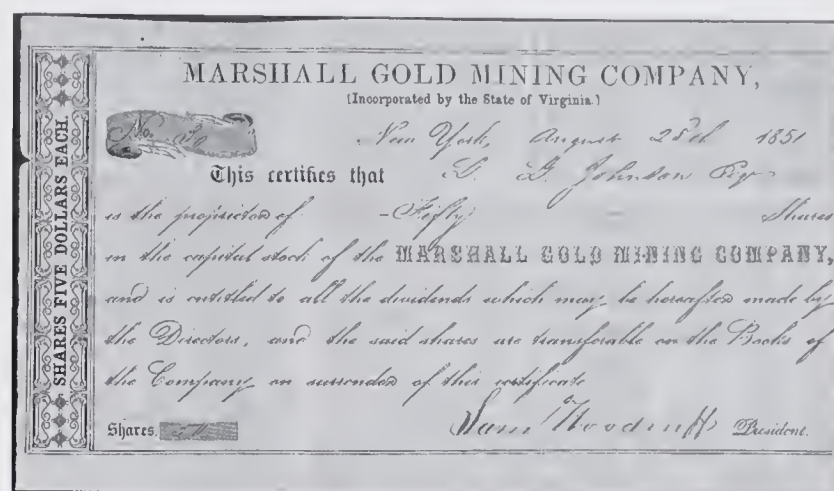 MARSHALL GOLD MINING COMPANY,
(Incorporated by the State of Virginia.)
No. 39
New York, August 1851
This certifies that Johnson Esqr
is the proprietor of - Fifty - Shares
in the capital stock of the MARSHALL GOLD MINING COMPANY,
and is entitled to all the dividends which may be hereafter made by
the Directors, and the said shares are transferable on the Books of
the Company on surrender of this certificate
Shares. 50 Saml Woodruff President.
SHARES FIVE DOLLARS EACH.